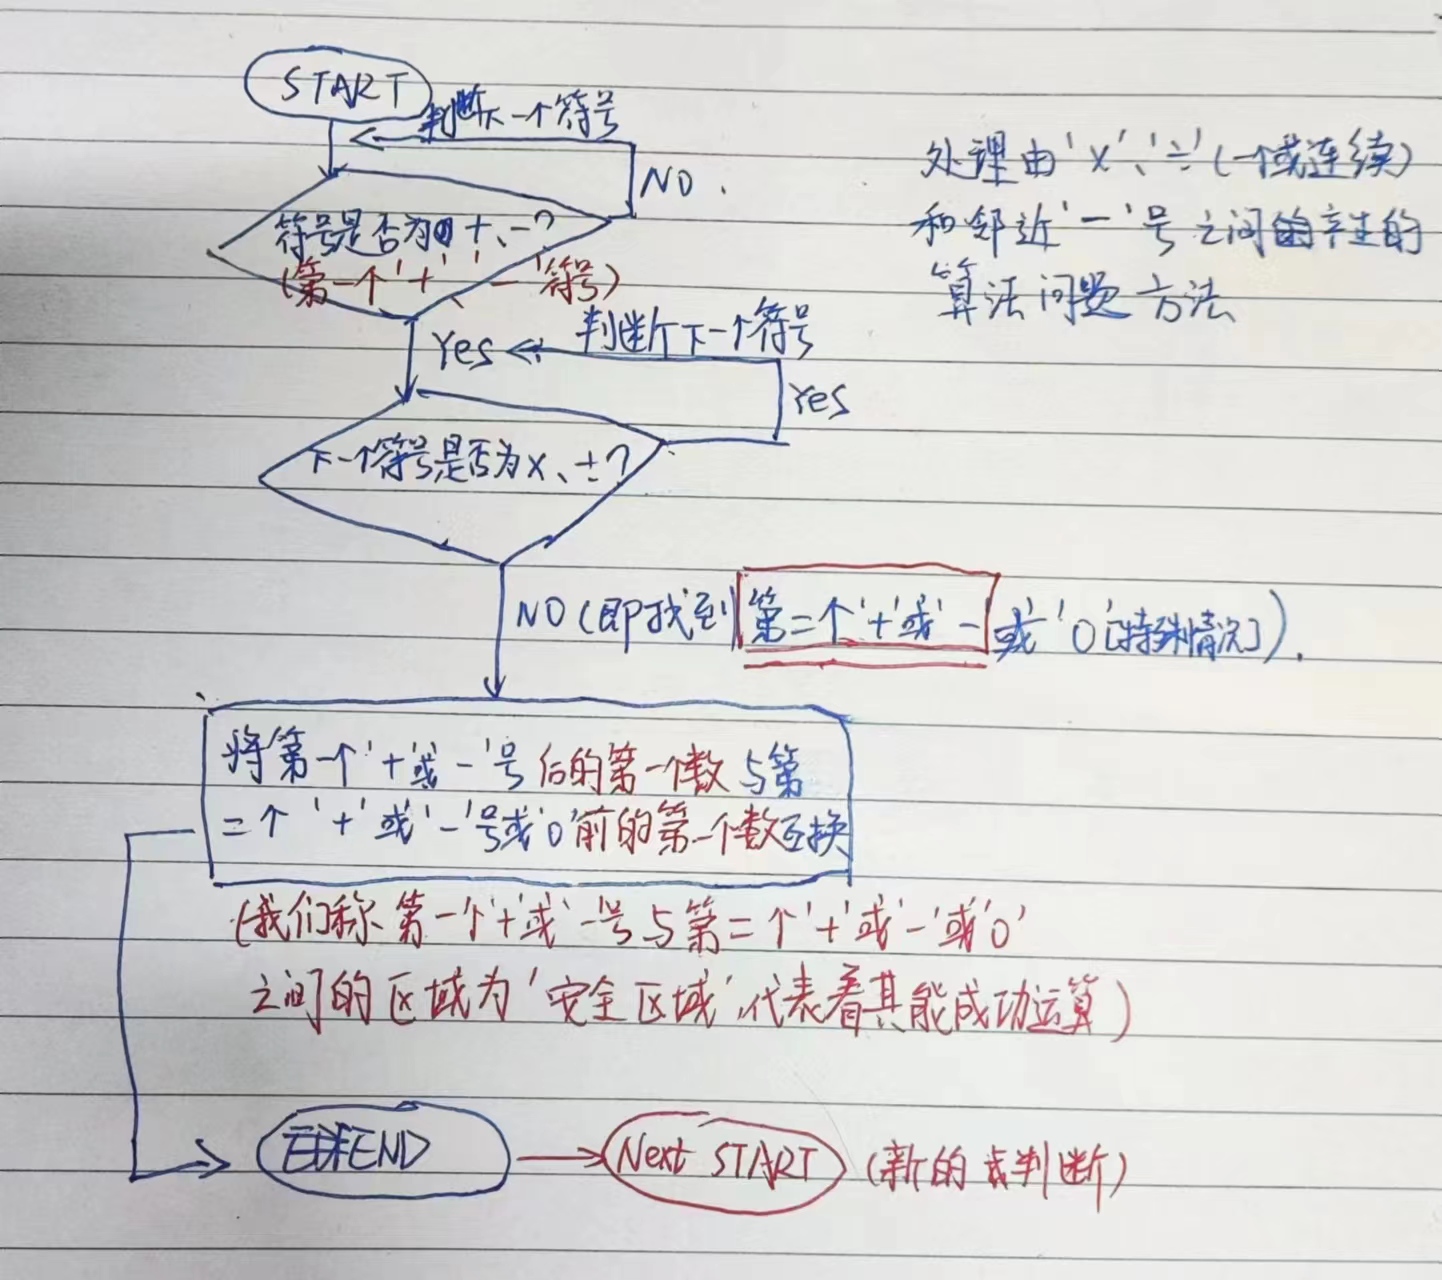 START
判断下一个符号
NO.
处理由'×'、'÷'(一个或连续)
和邻近'一'号之间的产生的
算法问题方法
符号是否为 +、-?
(第一个'+'、'-'符号)
Yes
判断下一个符号
Yes
下一个符号是否为×、÷?
NO(即找到第二个'+'或'-或'0'[特殊情况]).
将第一个'+'或'-'号后的第一个数与第
二个'+'或'-'号或'0'前的第一个数互换
(我们称第一个'+'或'-'号与第二个'+'或'-'或'0'
之间的区域为'安全区域',代表着其能成功运算)
END
Next START
(新的判断)